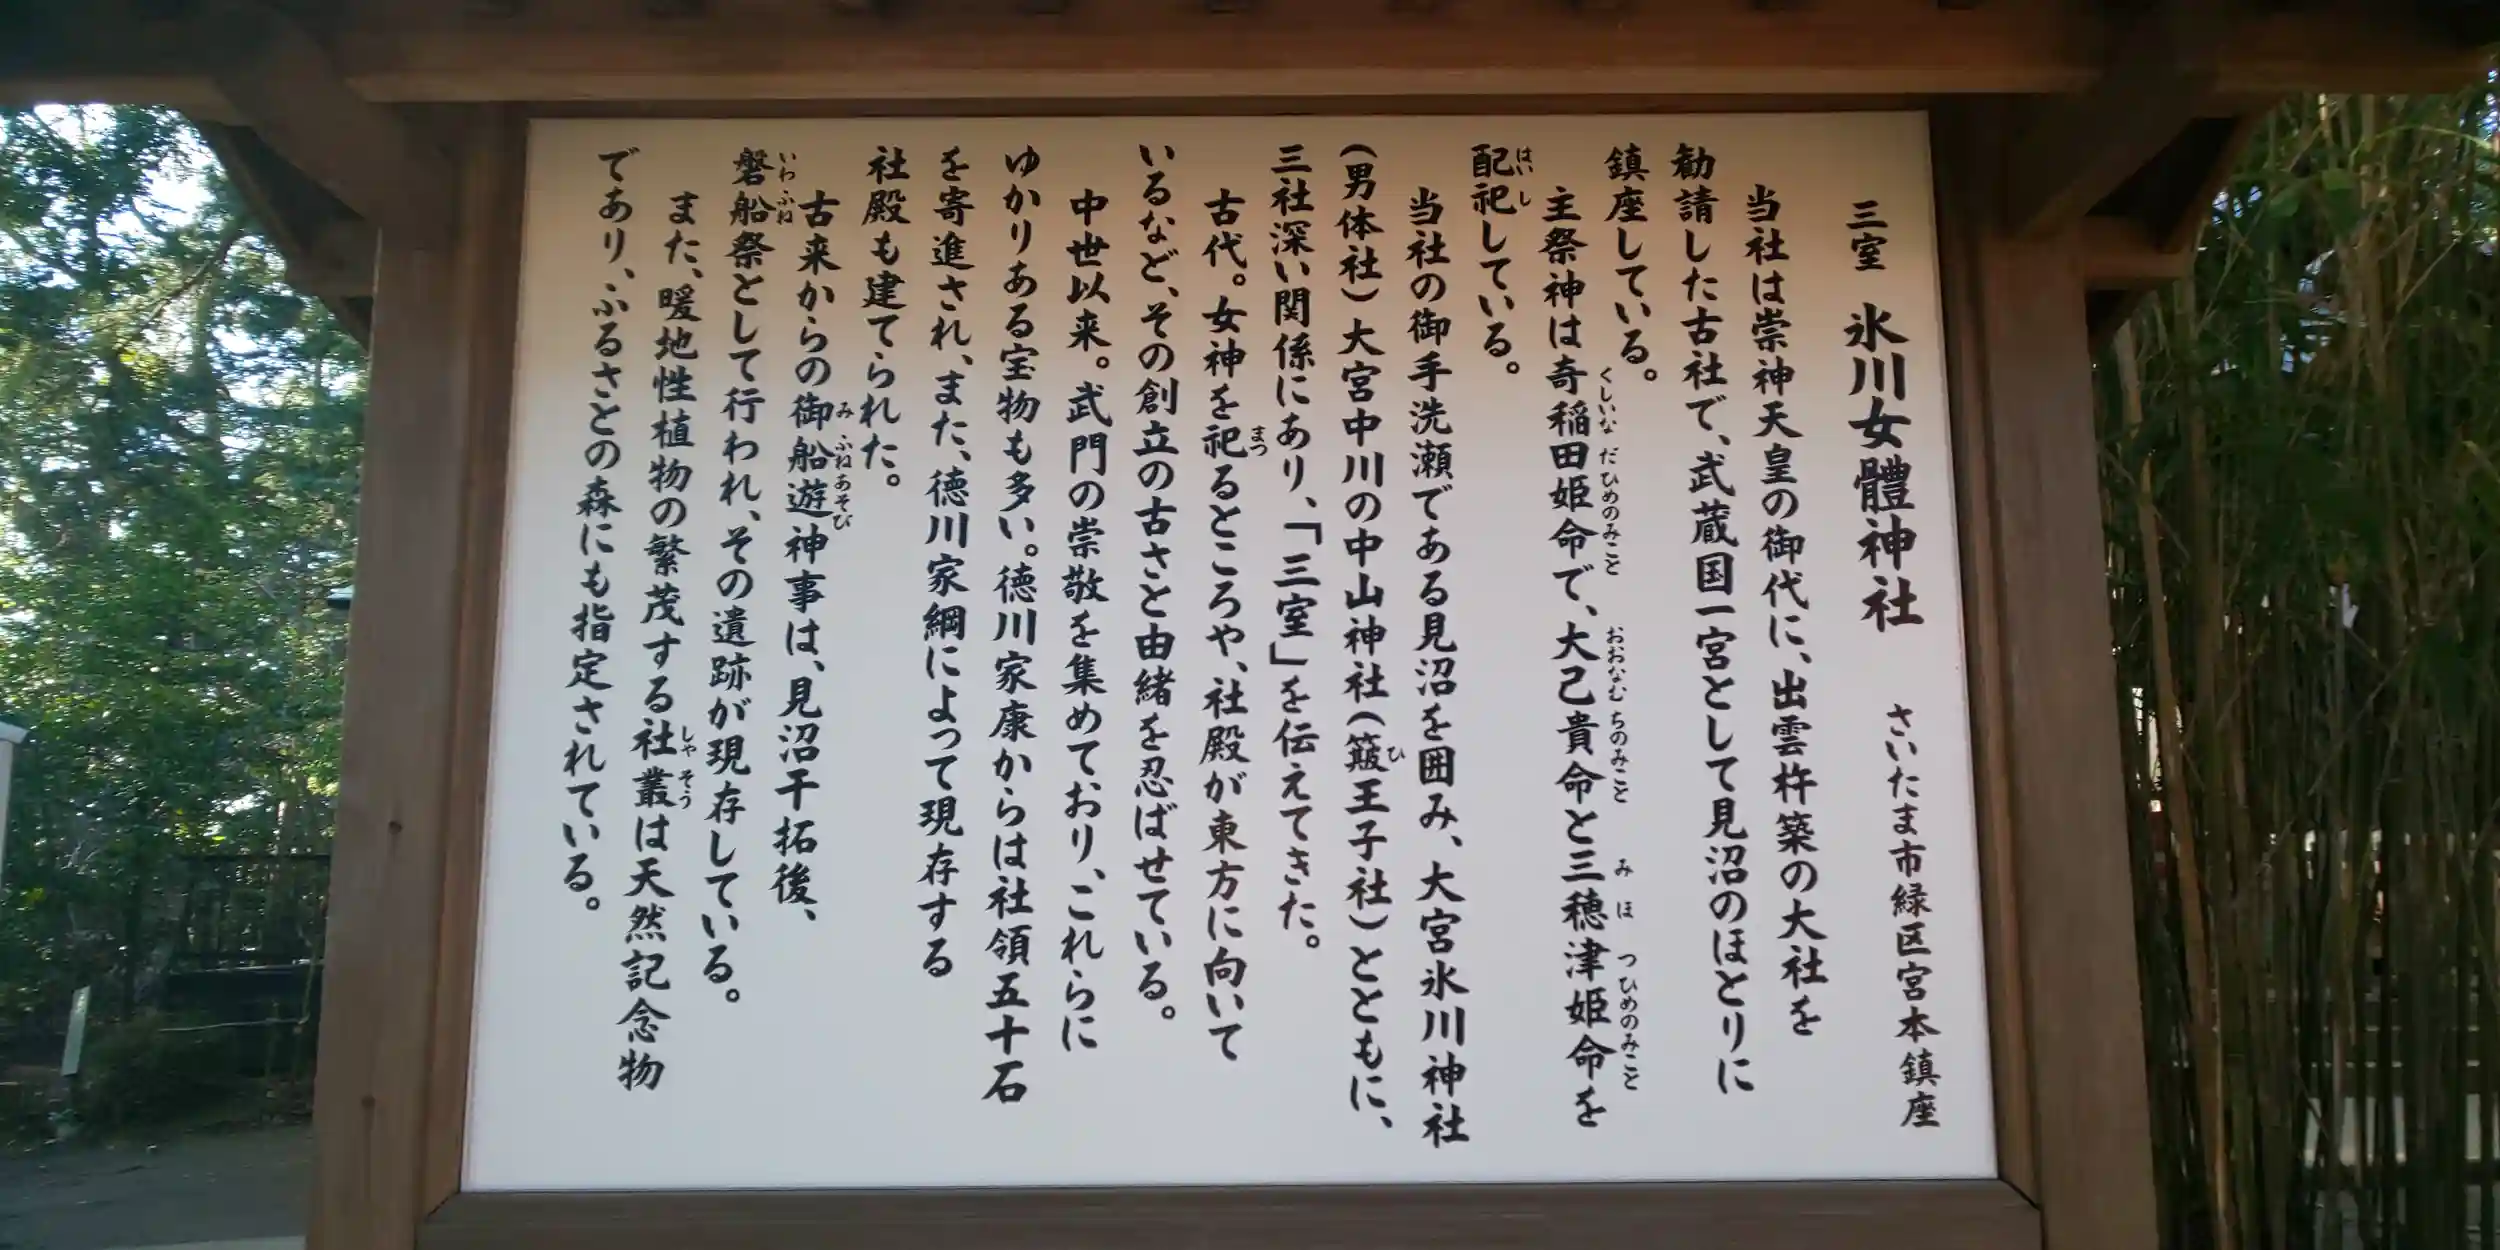 三室 氷川女體神社 さいたま市緑区宮本鎮座
当社は崇神天皇の御代に、出雲杵築の大社を
勧請した古社で、武蔵国一宮として見沼のほとりに
鎮座している。
主祭神は奇稲田姫命で、大己貴命と三穂津姫命を
配祀している。
当社の御手洗瀬である見沼を囲み、大宮氷川神社
(男体社)大宮中川の中山神社(簸王子社)とともに、
三社深い関係にあり、「三室」を伝えてきた。
古代。女神を祀るところや、社殿が東方に向いて
いるなど、その創立の古さと由緒を忍ばせている。
中世以来。武門の崇敬を集めており、これらに
ゆかりある宝物も多い。徳川家康からは社領五十石
を寄進され、また、徳川家綱によって現存する
社殿も建てられた。
古来からの御船遊神事は、見沼干拓後、
磐船祭として行われ、その遺跡が現存している。
また、暖地性植物の繁茂する社叢は天然記念物
であり、ふるさとの森にも指定されている。